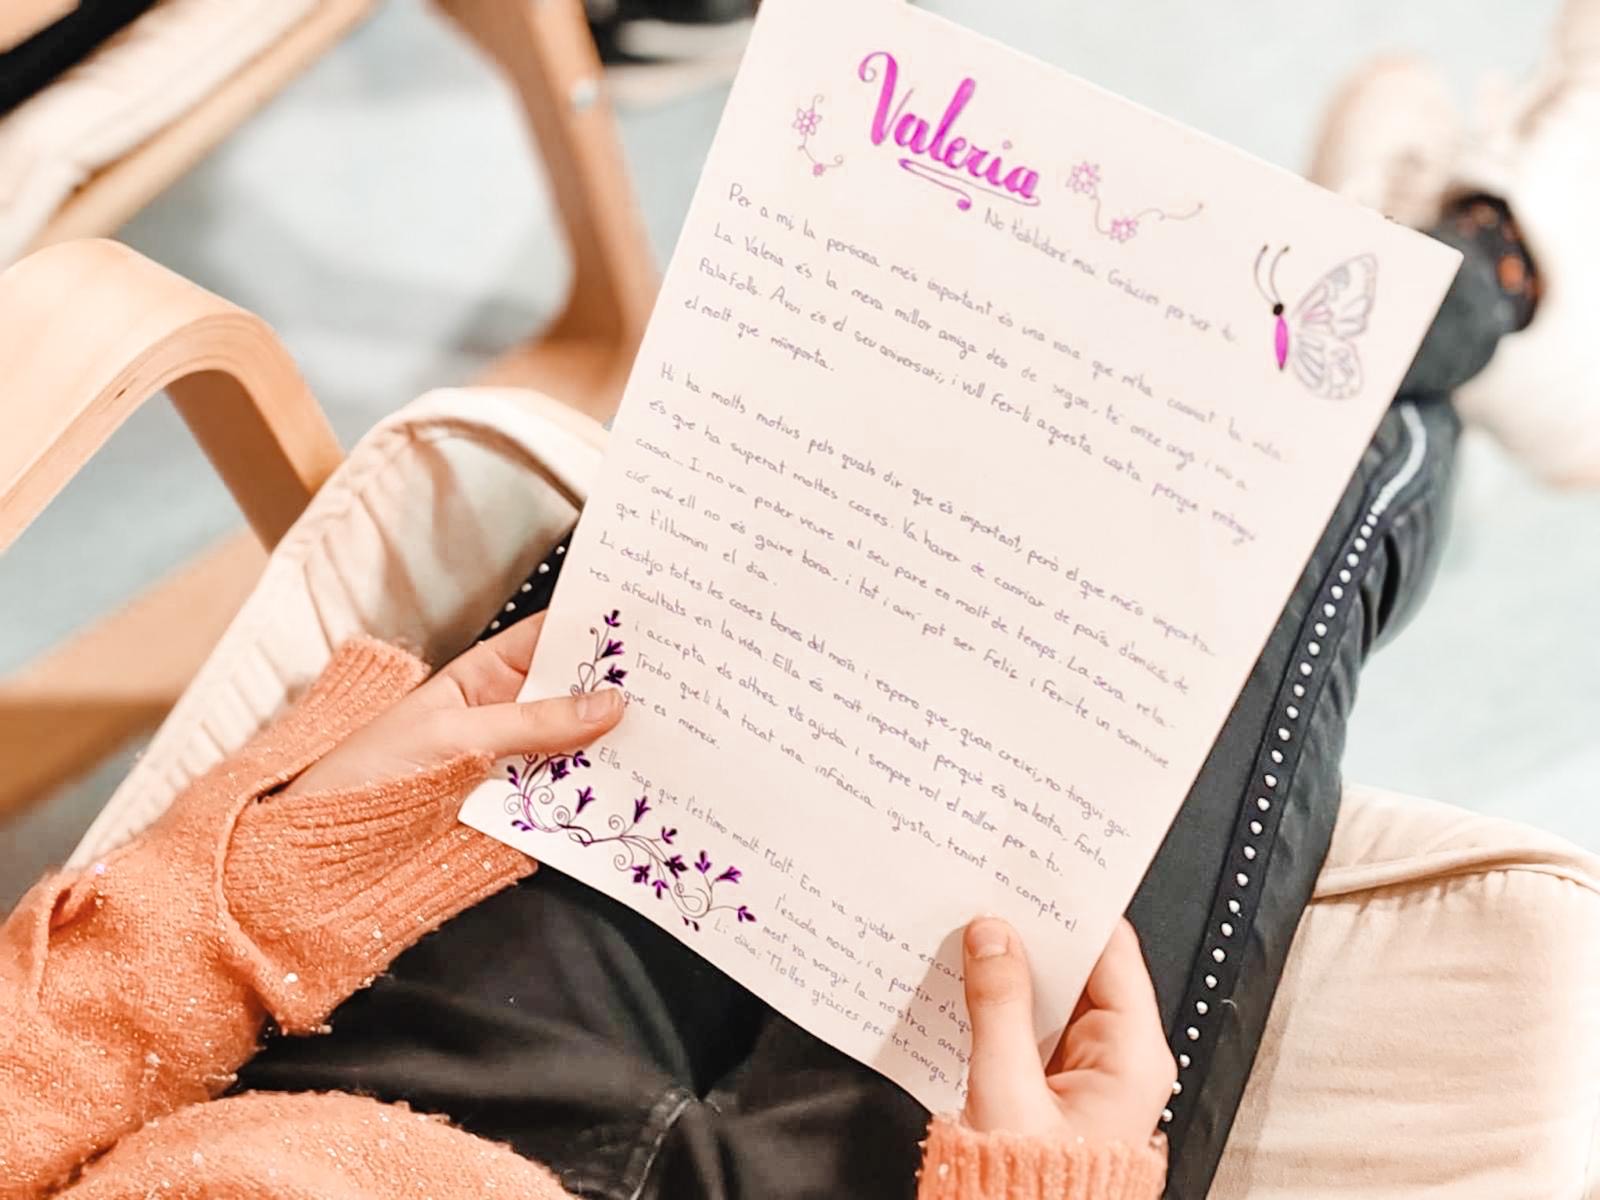 Valeria
No t'oblidaré mai. Gràcies per ser tu.
Per a mi, la persona més important és una noia que m'ha canviat la vida.
La Valeria és la meva millor amiga des de segon, té onze anys i viu a
Palafolls. Avui és el seu aniversari, i vull fer-li aquesta carta perquè entengui
el molt que m'importa.
Hi ha molts motius pels quals dir que és important, però el que més importa
és que ha superat moltes coses. Va haver de canviar de país, d'amics, de
casa... I no va poder veure al seu pare en molt de temps. La seva rela-
ció amb ell no és gaire bona, i tot i així pot ser feliç i fer-te un somriure
que t'il·lumini el dia.
Li desitjo totes les coses bones del món i espero que, quan creixi, no tingui gai-
res dificultats en la vida. Ella és molt important perquè és valenta, forta
i accepta els altres, els ajuda i sempre vol el millor per a tu.
Trobo que li ha tocat una infància injusta, tenint en compte el
que es mereix.
Ella sap que l'estimo molt. Molt. Em va ajudar a encaix
l'escola nova, i a partir d'aqu
ment va sorgir la nostra amist
Li diria: "Moltes gràcies per tot, amiga t